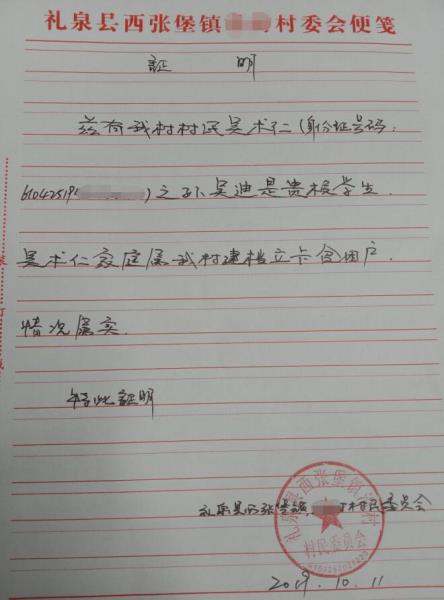 礼泉县西张堡镇 村委会便笺
証 明
兹有我村村民吴术仁(身份证号码:
61042519 )之孙吴迪是贵校学生.
吴术仁家庭属我村建档立卡贫困户.
情况属实.
特此証明
礼泉县西张堡镇 村民委员会
礼泉县西张堡镇 村
村民委员会
2019.10.11